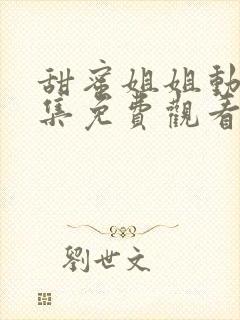 甜蜜姐姐動
集免費觀看
劉世文